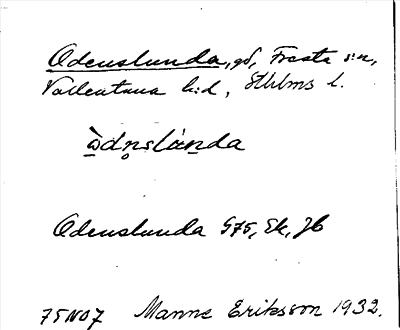 Odenslunda, gd, Fresta s:n,
Vallentuna h:d, Sthlms l.
ὼdn̥slùnda
Odenslunda G75, Ek, Jb
75NO7 Manne Eriksson 1932.